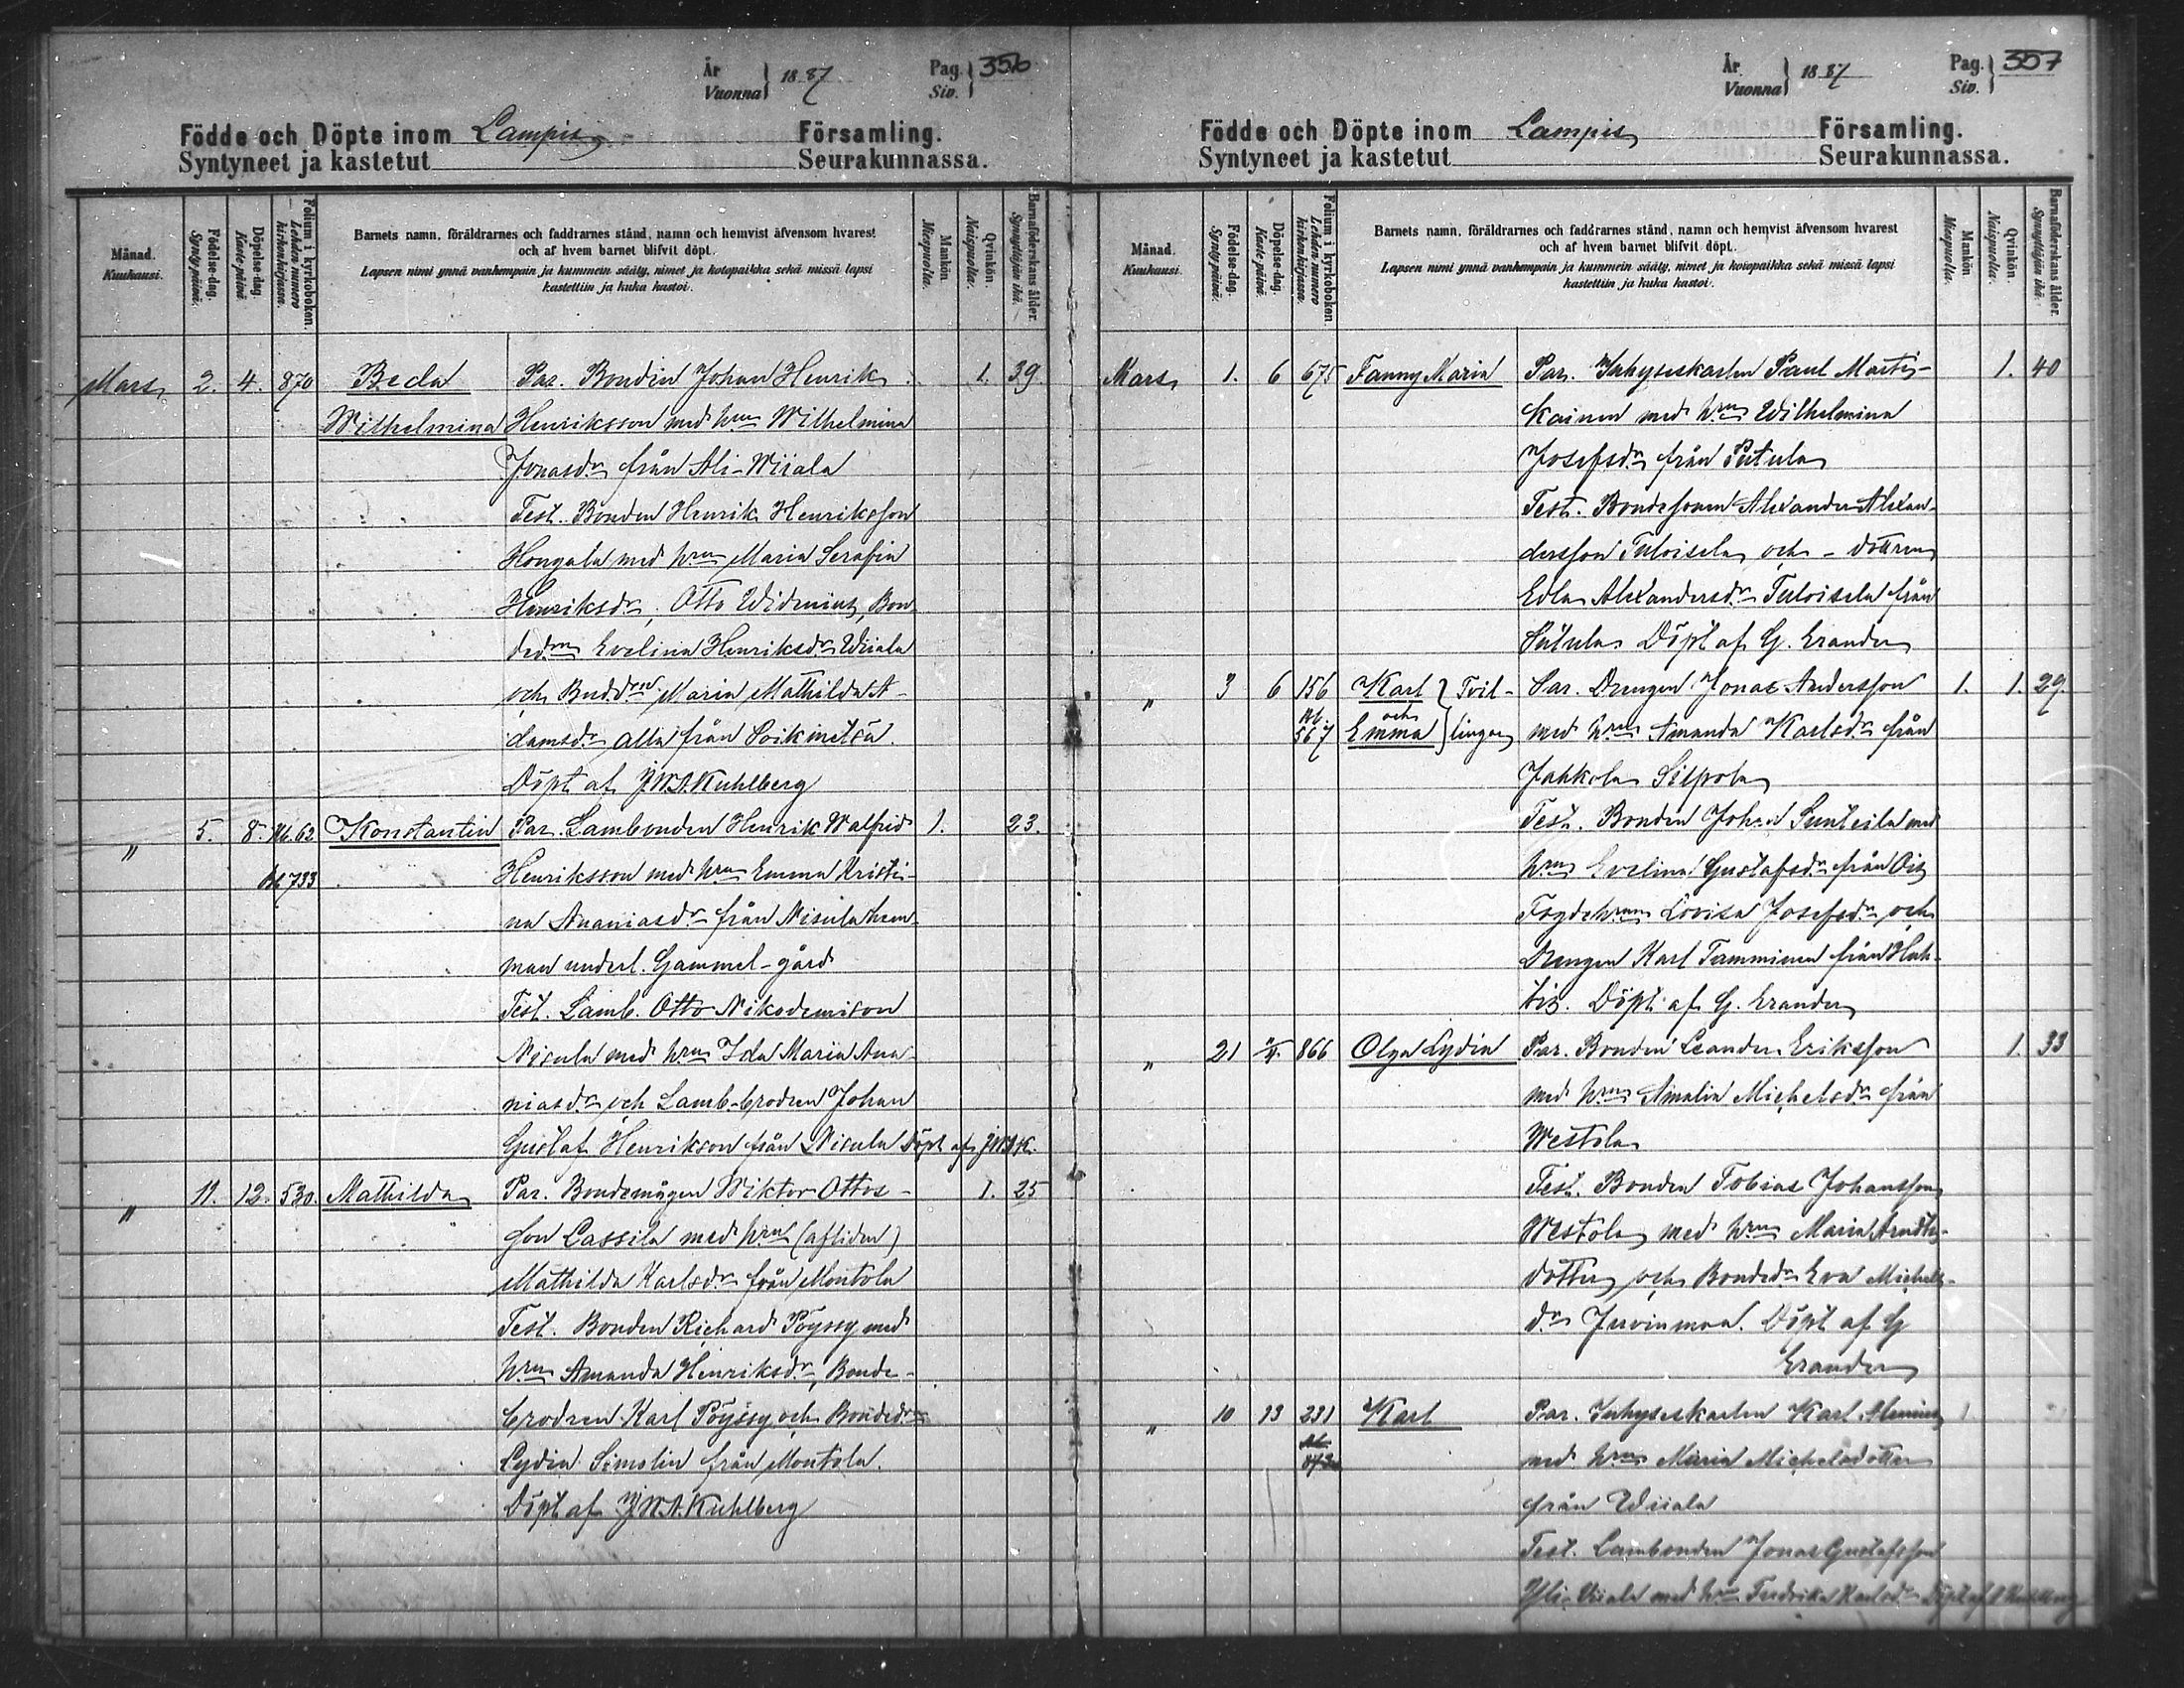 År
Vuonna } 1887
Pag.
Siv. } 356
Födde och Döpte inom Lampis Församling.
Syntyneet ja kastetut Seurakunnassa.
Månad.
Kuukausi.
Födelse-dag.
Syntypäivä.
Döpelse-dag.
Kastepäivä.
Folium i kyrkoboken.
Lehden numero kirkonkirjassa.
Barnets namn, föräldrarnes och faddrarnes stånd, namn och hemvist äfvensom hvarest
och af hvem barnet blifvit döpt.
Lapsen nimi ynnä vanhempain ja kummein sääty, nimet ja kotopaikka sekä missä lapsi
kastettiin ja kuka kastoi.
Mankön.
Miespuolia.
Qvinkön.
Naispuolia.
Barnaföderskans ålder.
Synnyttäjän ikä.
Mars 2. 4. 870 Beda Par. Bonden Johan Henrik 1. 39.
Wilhelmina Henriksson med hrm Wilhelmina
Jonasdr från Ali-Wiiala
Test. Bonden Henrik Henriksson
Hongala med hrm Maria Serafia
Henriksdr, Otto Widenius, Bon
dedrn Evelina Henriksdr Wiiala
och Bndd Maria Mathilda A-
damsdr alla från Soikmetsä.
Döpt af J.W.A. Kuhlberg
" 5. 8. Ab. 62 Konstantin Par. Lambonden Henrik Walfrid 1. 23.
Ab 733 Henriksson med hrm Emma Kristi-
na Ananiasdr från Nisula
man underl. Gammel-gård
Test. Lamb. Otto Nikodemison
Nisula med hrm Ida Maria Ana-
niasdr och Lamb-brodren Johan
Gustaf Henrikson från Nisula Döpt af J.W.A.K.
" 11. 12. 530. Mathilda Par. Bondemågen Wiktor Ottos- 1. 25
son Cassila med hrm (afliden)
Mathilda Karlsdr från Montola
Test. Bonden Richard Pöyssy med
hrm Amanda Henriksdr, Bonde-
brodren Karl Pöyssy och Bondedrn
Lydia Simolin från Montola.
Döpt af J.W.A. Kuhlberg
År
Vuonna } 1887
Pag.
Siv. } 357
Födde och Döpte inom Lampis Församling.
Syntyneet ja kastetut Seurakunnassa.
Månad.
Kuukausi.
Födelse-dag.
Syntypäivä.
Döpelse-dag.
Kastepäivä.
Folium i kyrkoboken.
Lehden numero kirkonkirjassa.
Barnets namn, föräldrarnes och faddrarnes stånd, namn och hemvist äfvensom hvarest
och af hvem barnet blifvit döpt.
Lapsen nimi ynnä vanhempain ja kummein sääty, nimet ja kotopaikka sekä missä lapsi
kastettiin ja kuka kastoi.
Mankön
Miespuolia.
Qvinkön.
Naispuolia.
Barnaföderskans ålder.
Synnyttäjän ikä.
Mars 1. 6 675 Fanny Maria Par. Inhyseskarlen Paul Martis- 1. 40
kainen med hrm Wilhelmina
Josefsdr från Putula
Test. Bondesonen Alexander Alexan-
dersson Tuloisela och - dottren
Edla Alexandersdr Tuloisela från
Putula. Döpt af G. Erander
" 3 6 156 Karl } Tvil- Par. Drengen Jonas Andersson 1. 1. 29.
Ab. 567 och Emma } lingar med hrm Amanda Karlsdr från
Jahkola Silpola
Test. Bonden Johan Sunteila med
hrm Evelina Gustafsdr från Ois
Fogdehrm Lovisa Josefsdr och
Drengen Karl Tamminen från Huh-
tis. Döpt af G. Erander
" 21 866 Olga Lydia Par. Bonden Leander Eriksson 1. 33
med hrm Amalia Michelsdr från
Westola
Test. Bonden Tobias Johansson
Westola med hrm Maria
dotter och Bondedr Eva Michels-
dr Juvinmaa. Döpt af G
Erander
" 10 13 231 Karl Par. Inhyseskarlen Karl 1
med hrm Maria Michelsdotter
från Wiiala
Test. Lambonden Jonas Gustafsson
Yli-Viiala med hrm Fredrika Karlsdr Döpt af Kuhlberg